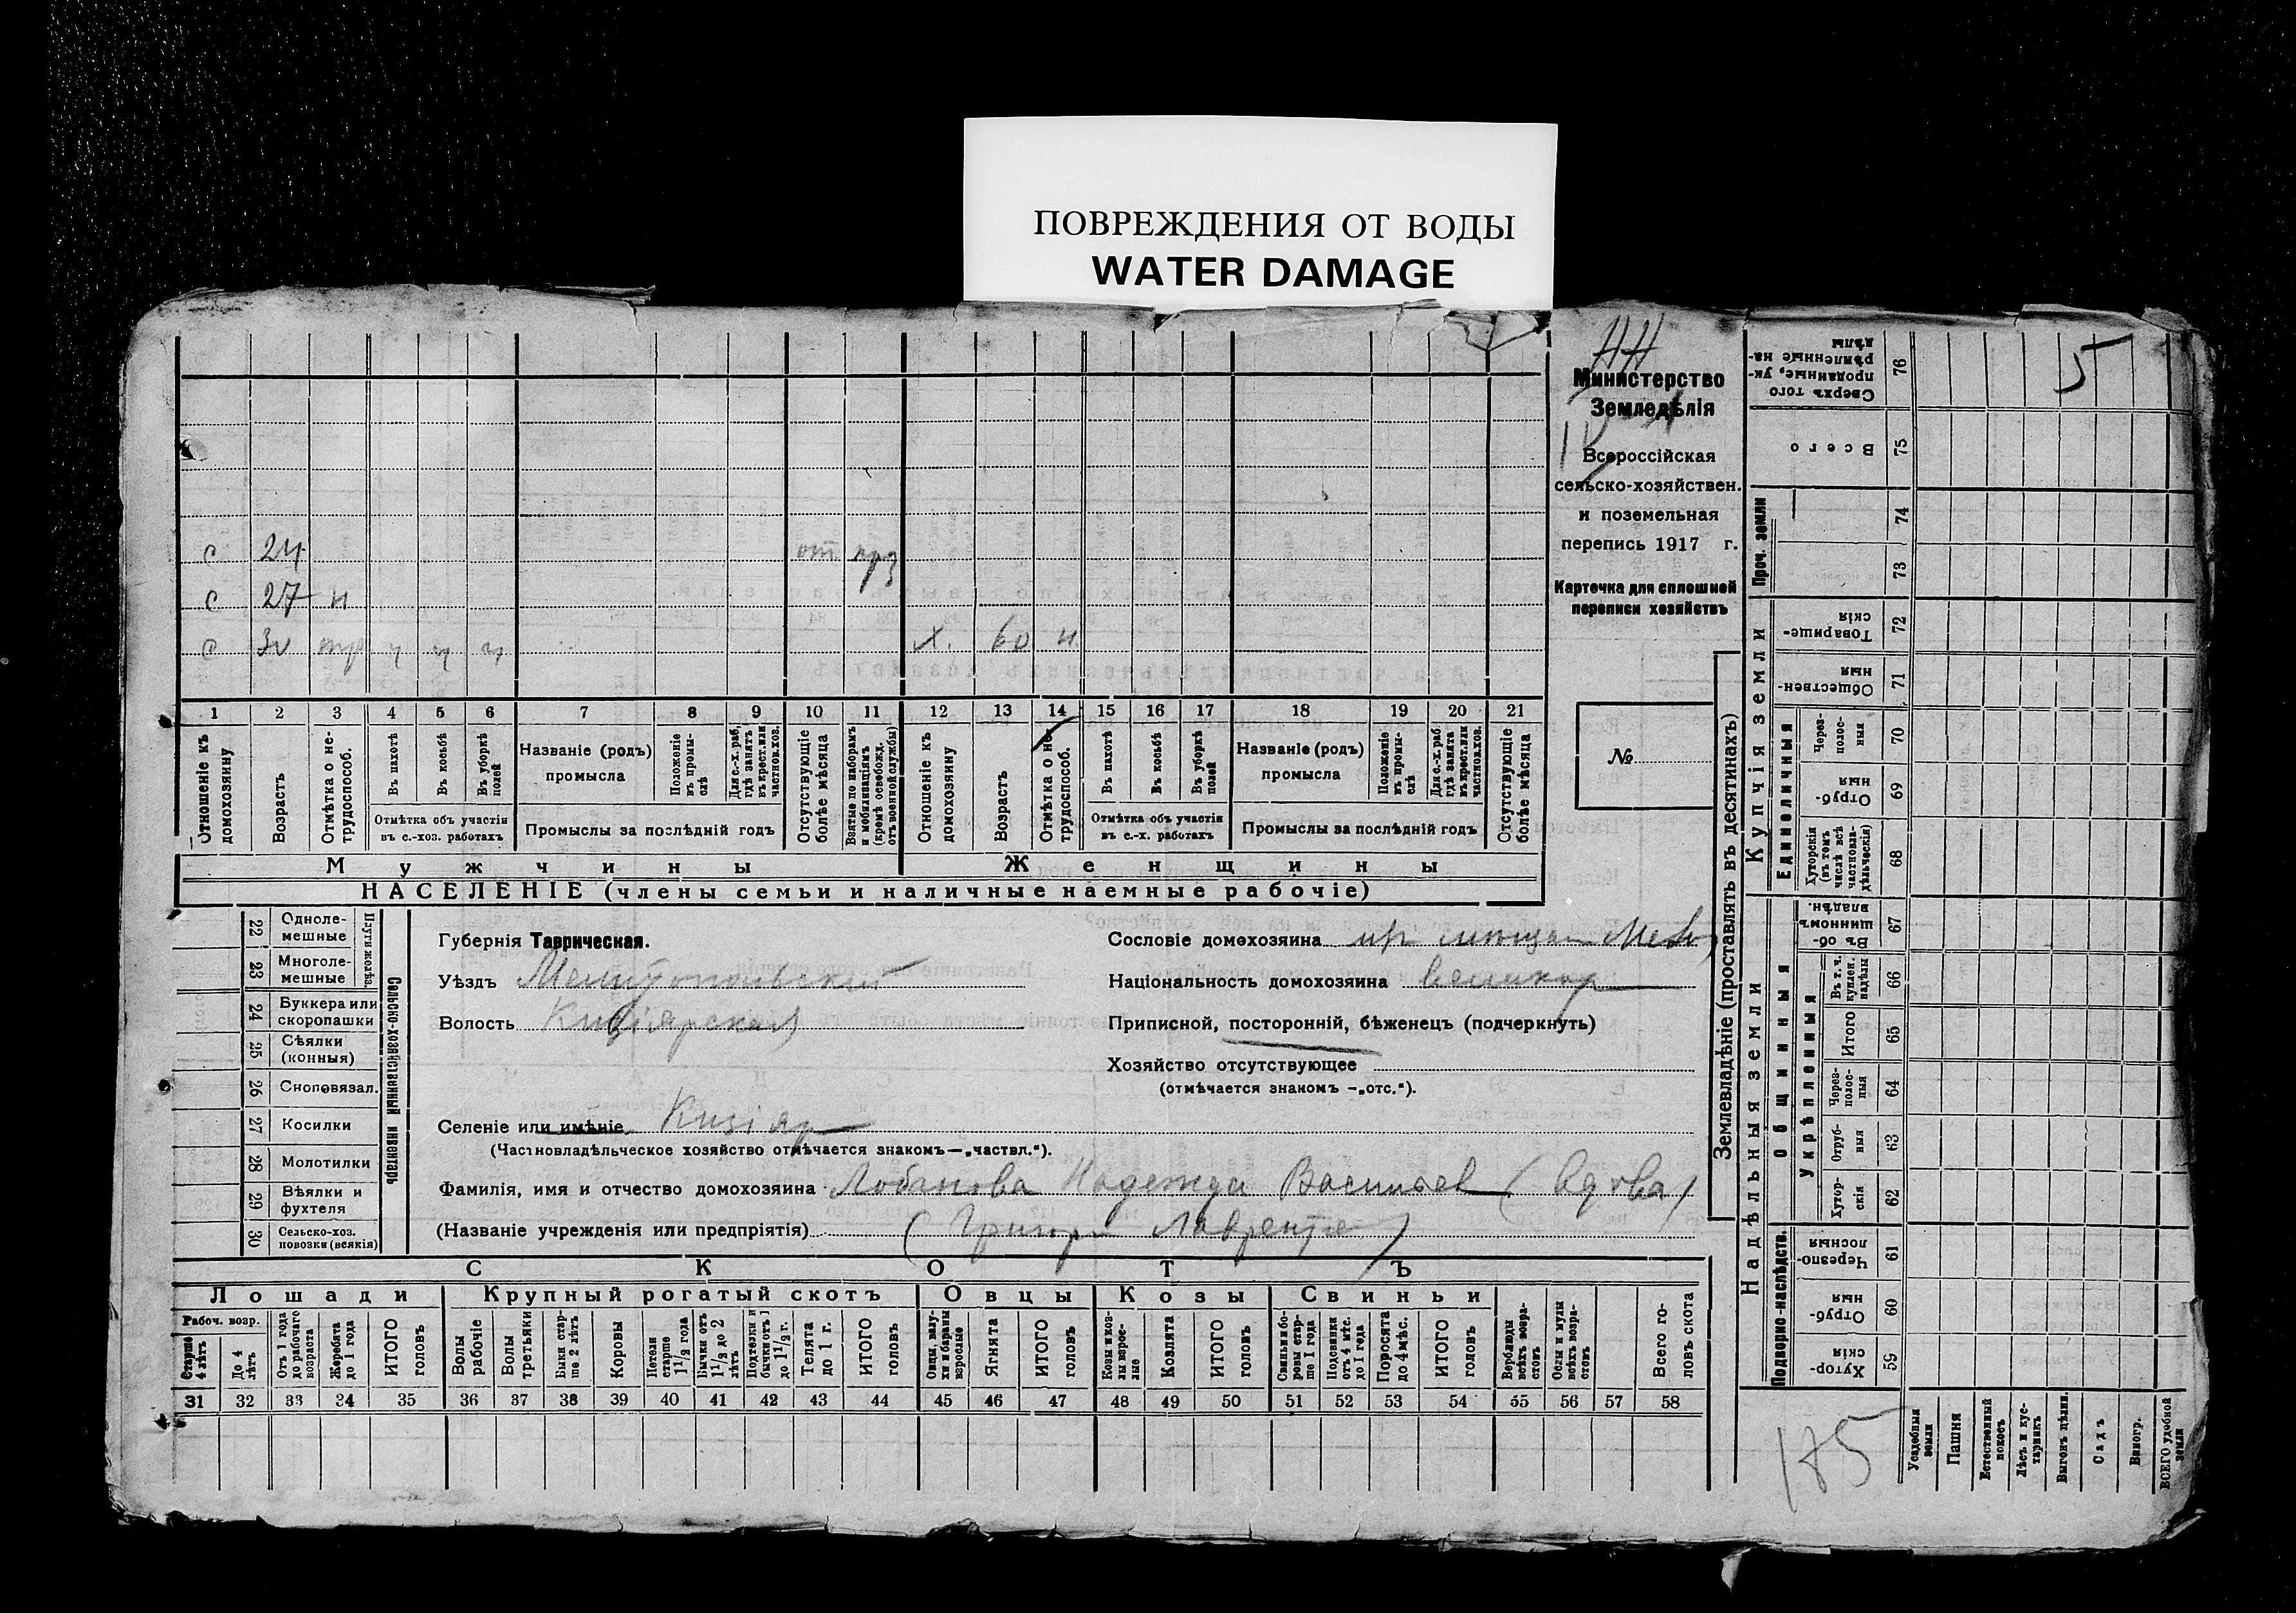 ПОВРЕЖДЕНИЯ ОТ ВОДЫ
WATER DAMAGE
Министерство
Земледѣлія
Всероссійская
сельско-хозяйствен.
и поземельная
перепись 1917 г.
Карточка для сплошной
переписи хозяйствъ
№
с 24 от
с 27 н
с х. 60 н.
1 2 3 4 5 6 7 8 9 10 11 12 13 14 15 16 17 18 19 20 21
Отношеніе къ домохозяину
Возрастъ
Отмѣтка о нетрудоспособ.
Въ пахотѣ
Въ косьбѣ
Въ уборкѣ полей
Отмѣтка объ участіи
въ с.-хоз. работахъ
Названіе (родъ)
промысла
Положеніе въ промыслѣ
Для с.-х. раб. гдѣ занятъ въ крест. или частновл. хоз.
Промыслы за послѣдній годъ
Отсутствующіе болѣе мѣсяца
Взятые по наборамъ и мобилизаціямъ (кромѣ освобожд. отъ военной службы)
Отношеніе къ домохозяину
Возрастъ
Отмѣтка о нетрудоспособ.
Въ пахотѣ
Въ косьбѣ
Въ уборкѣ полей
Отмѣтка объ участіи
въ с.-х. работахъ
Названіе (родъ)
промысла
Положеніе въ промыслѣ
Для с.-х. раб. гдѣ занята въ крест. или частнов. хоз.
Промыслы за послѣдній годъ
Отсутствующіе болѣе мѣсяца
Мужчины Женщины
НАСЕЛЕНІЕ (члены семьи и наличные наемные рабочіе)
Сельско-хозяйственный инвентарь
Плуги желѣз.
22 Одноле-
мешные
23 Многоле-
мешные
24 Буккера или
скоропашки
25 Сѣялки
(конныя)
26 Сноповязал.
27 Косилки
28 Молотилки
29 Вѣялки и
фухтеля
30 Сельско-хоз.
повозки (всякія)
Губернія Таврическая.
Уѣздъ Мелитопольскій
Волость Кизіярская
Селеніе или имѣніе Кизіяр
(Частновладѣльческое хозяйство отмѣчается знакомъ—„частвл.“).
Фамилія, имя и отчество домохозяина Лобанова Надежда Васильев (вдова)
(Названіе учрежденія или предпріятія) (Григори Лавренте)
Сословіе домохозяина
Національность домохозяина великор
Приписной, посторонній, бѣженецъ (подчеркнуть)
Хозяйство отсутствующее
(отмѣчается знакомъ —„отс.“).
СКОТЪ
Лошади Крупный рогатый скотъ Овцы Козы Свиньи
Рабоч. возр.
Старше 4 лѣтъ
До 4 лѣтъ
Отъ 1 года до рабочаго возраста
Жеребята до 1 года
ИТОГО головъ
Волы рабочіе
Волы третьяки
Быки старше 2 лѣтъ
Коровы
Нетели старше 1½ года
Бычки отъ 1½ до 2 лѣтъ
Подтелки и бычки отъ 1 до 1½ г.
Телята до 1 г.
ИТОГО головъ
Овцы, валухи и бараны взрослые
Ягнята
ИТОГО головъ
Козы и козлы взрослые
Козлята
ИТОГО головъ
Свиньи и боровы старше 1 года
Подсвинки отъ 4 мѣс. до 1 года
Поросята до 4 мѣс.
ИТОГО головъ
Верблюды всѣхъ возрастовъ
Ослы и мулы всѣхъ возрастовъ
Всего головъ скота
31 32 33 34 35 36 37 38 39 40 41 42 43 44 45 46 47 48 49 50 51 52 53 54 55 56 57 58
Землевладѣніе (проставлять въ десятинахъ)
5
76 Сверхъ того проданные, укрѣпленные надѣлы
75 Всего
Проч. земли
74
73
Купчія земли
72 Товарищескія
71 Общественныя
Единоличныя
70 Черезполосныя
69 Отрубныя
68 Хуторскія (въ томъ числѣ всѣ частновладѣльческія)
Надѣльныя земли
Общинныя
67 Въ общинномъ владѣн.
Укрѣпленныя
66 Въ т. ч. куплен. надѣлы
65 Итого
64 Черезполосныя
63 Отрубныя
62 Хуторскія
Подворно-наслѣдств.
61 Черезполосныя
60 Отрубныя
59 Хуторскія
Усадебныя земли
Пашня
Естественный покосъ
Лѣсъ и кустарникъ
Выгонъ дѣлин.
Садъ
Виногр.
ВСЕГО удобной земли
185